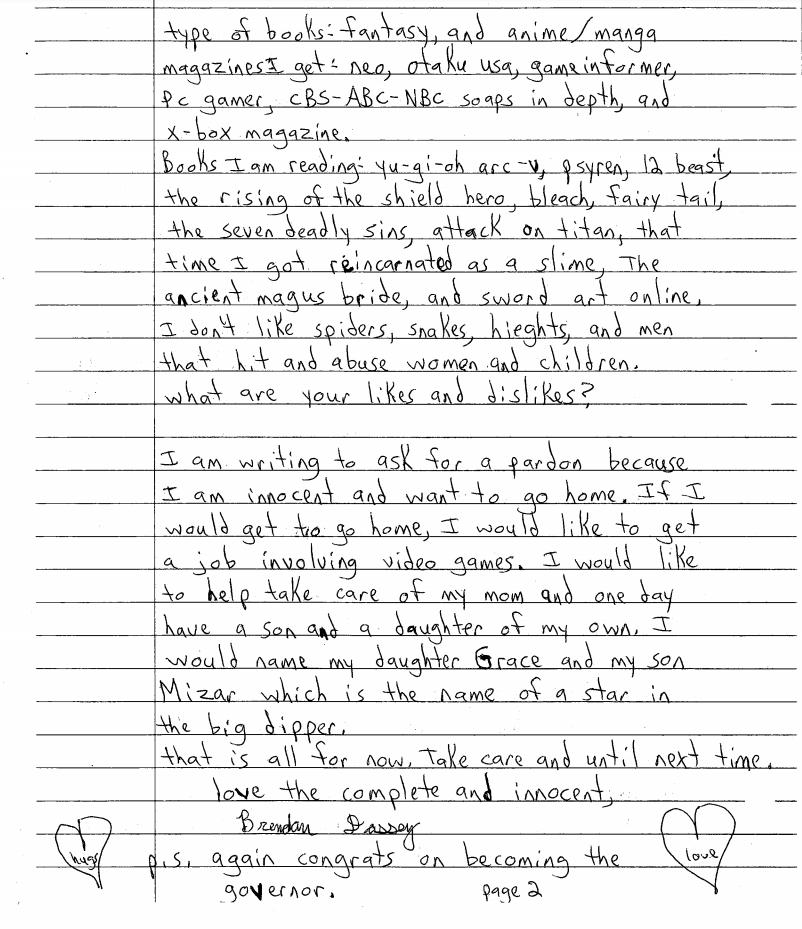 type of books: fantasy, and anime/manga
magazines I get: neo, otaku usa, gameinformer,
pc gamer, CBS-ABC-NBC soaps in depth, and
x-box magazine.
Books I am reading: yu-gi-oh arc-v, psyren, 12 beast,
the rising of the shield hero, bleach, fairy tail,
the seven deadly sins, attack on titan, that
time I got reincarnated as a slime, The
ancient magus bride, and sword art online.
I don't like spiders, snakes, hieghts, and men
that hit and abuse women and children.
what are your likes and dislikes?
I am writing to ask for a pardon because
I am innocent and want to go home. If I
would get to go home, I would like to get
a job involving video games. I would like
to help take care of my mom and one day
have a son and a daughter of my own. I
would name my daughter Grace and my son
Mizar which is the name of a star in
the big dipper.
that is all for now. Take care and until next time.
love the complete and innocent,
Brendan Dassey
hugs
love
p.s. again congrats on becoming the
governor.
page 2